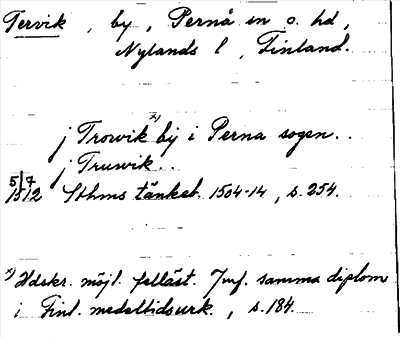 Tervik, by, Pernå sn o. hd,
Nylands l, Finland.
j Trowik x) bij i Perna sogen..
j Truwik..
5/7
1512 Sthms tänkeb. 1504-14, s. 254.
x) Hdskr. möjl. felläst. Jmf. samma diplom
i Finl. medeltidsurk., s. 184.